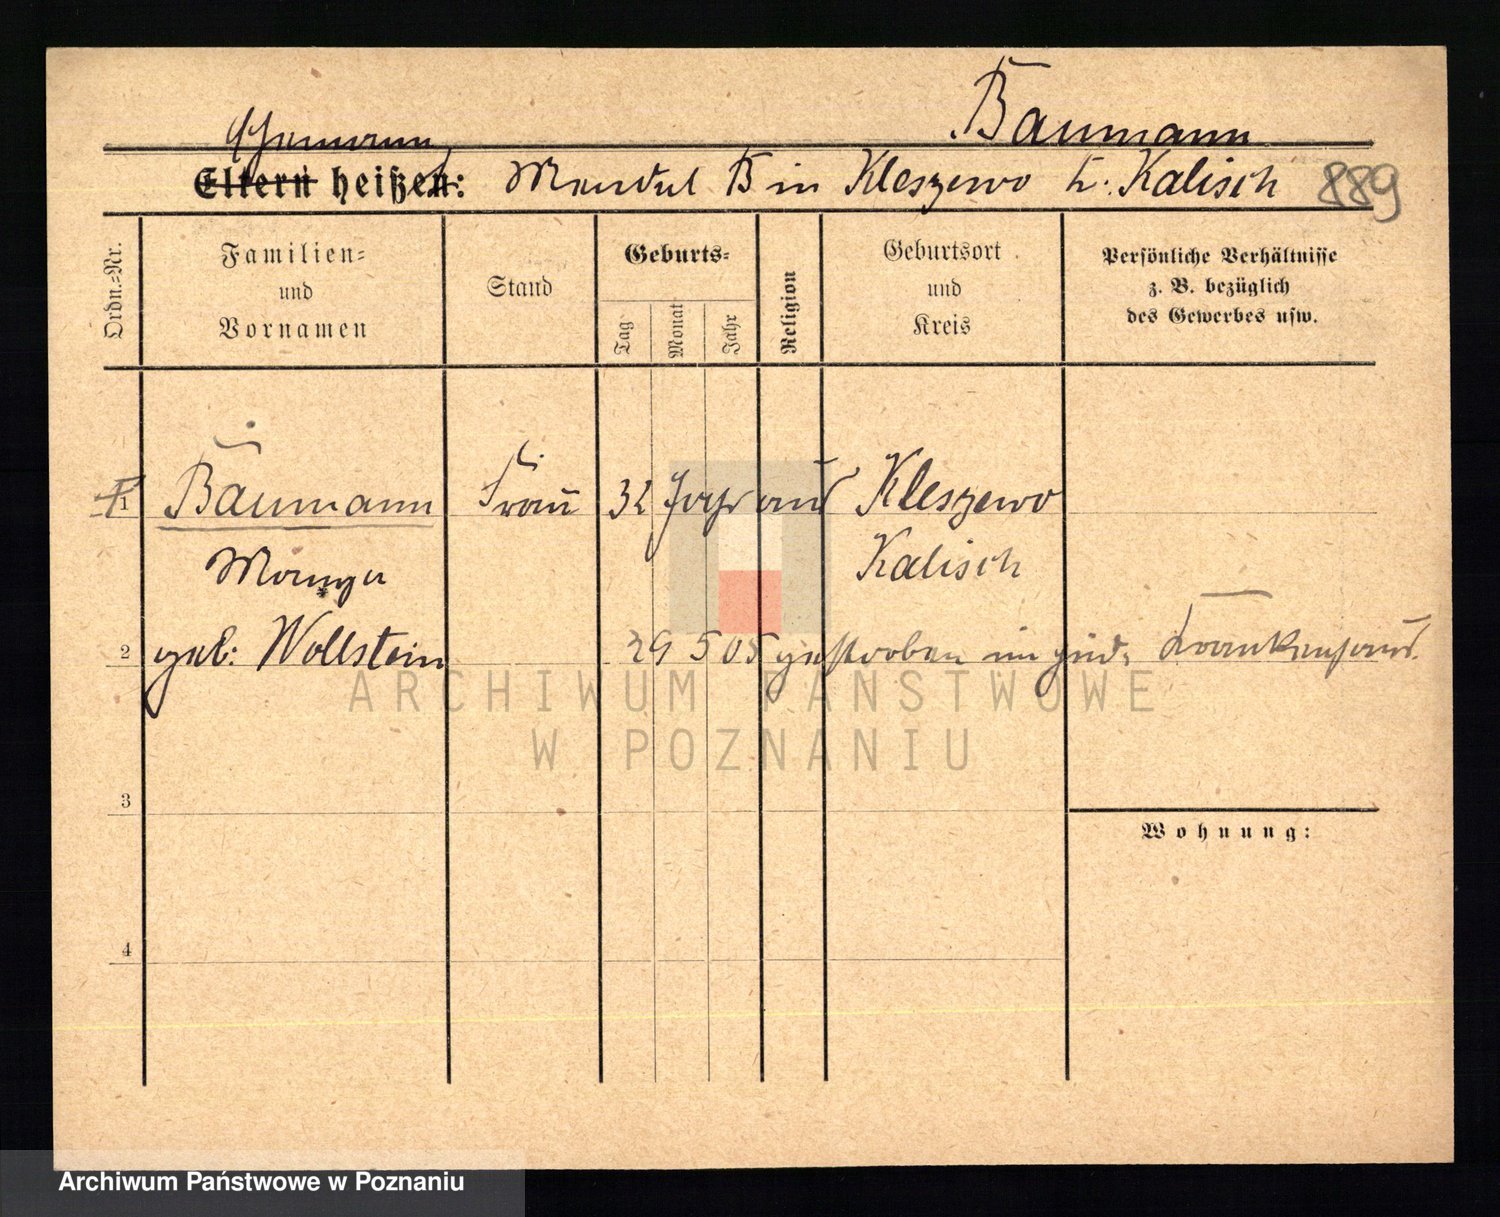 Baumann
Ehemann
Eltern heißen: Mendel B in Kleszewo K. Kalisch 889
Ordn.-Nr.
Familien-
und
Vornamen
Stand
Geburts-
Tag
Monat
Jahr
Religion
Geburtsort
und
Kreis
Persönliche Verhältnisse
z. B. bezüglich
des Gewerbes usw.
1 Baumann Frau 32 Jahr aus Kleszewo
Kalisch
2 geb: Wollstein 29 5 05 gestorben im jüd. Krankenhaus.
ARCHIWUM PAŃSTWOWE
W POZNANIU
3
Wohnung:
4
Archiwum Państwowe w Poznaniu